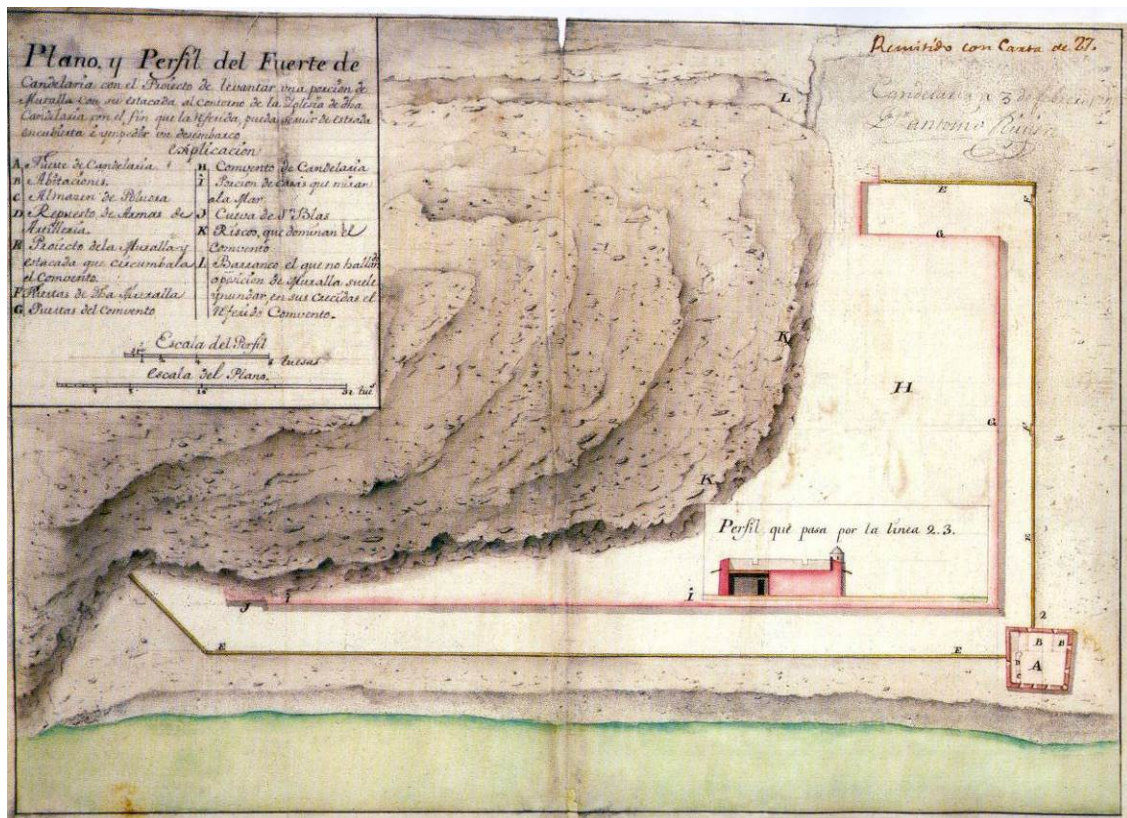 Plano, y Perfil del Fuerte de
Candelaria con el Proiecto de levantar una porcion de
Muralla con su estacada al Contorno de la Iglesia de dha
Candelaria con el fin que la referida, pueda servir de estrada
encubierta è ympedir un desembarco
explicacion
A Fuerte de Candelaria.
B Abitaciones.
C Almazen de Polvora
D Repuesto, de Armas de
Artilleria.
E Proiecto de la Muralla y
estacada que circumbala
el Comvento.
F Puertas de dha Muralla
G Puertas del Comvento
H Comvento de Candelaria
i Porcion de casas que miran
ala Mar
J Cueva de Sn Blas
K Riscos, que dominan el
Comvento
L Barranco, el que no
oposicion de Muralla suele
ynundar, en sus crecidas el
referido Comvento.
Escala del Perfil
tuesas
Escala del Plano.
32
Remitido con Carta de 27.
Candelaria a 3 de
Antonio
L
E
F
G
K
H
G
F
K
E
Perfil que pasa por la linea 2.3.
J
i
i
2
E
E
B
B
D
A
C